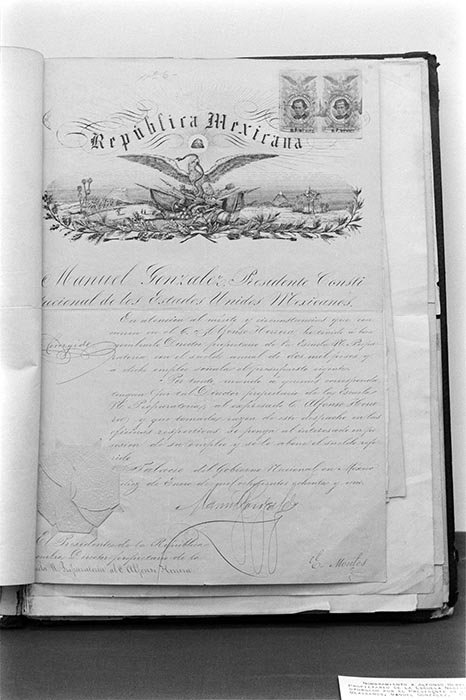 Nº 6.
República Mexicana
Manuel Gonzalez, Presidente Consti
tucional de los Estados Unidos Mexicanos,
En atencion al mérito y circunstancias que con
curren en el C. Alfonso Herrera, ha tenido á bien
nombrarle Director propietario de la Escuela N. Prepa
ratoria con el sueldo anual de dos mil pesos y
á dicho empleo señala el presupuesto vigente.
Por tanto, mando á quienes corresponda
tengan por tal Director propietario de la Escuela
N. Preparatoria, al expresado C. Alfonso Herre
ra, y que tomada razon de este despacho en las
oficinas respectivas se ponga al interesado en po
sesion de su empleo y se le abone el sueldo refe
rido.
Palacio del Gobierno Nacional en México
diez de Enero de mil ochocientos ochenta y uno.
Manuel Gonzalez
El Presidente de la República
nombra Director propietario de la
Escuela N. Preparatoria al C. Alfonso Herrera.
E. Montes
NOMBRAMIENTO A ALFONSO
PROPIETARIO DE LA ESCUELA
OTORGADO POR EL PRESIDENTE
MEXICANOS, MANUEL GONZALEZ